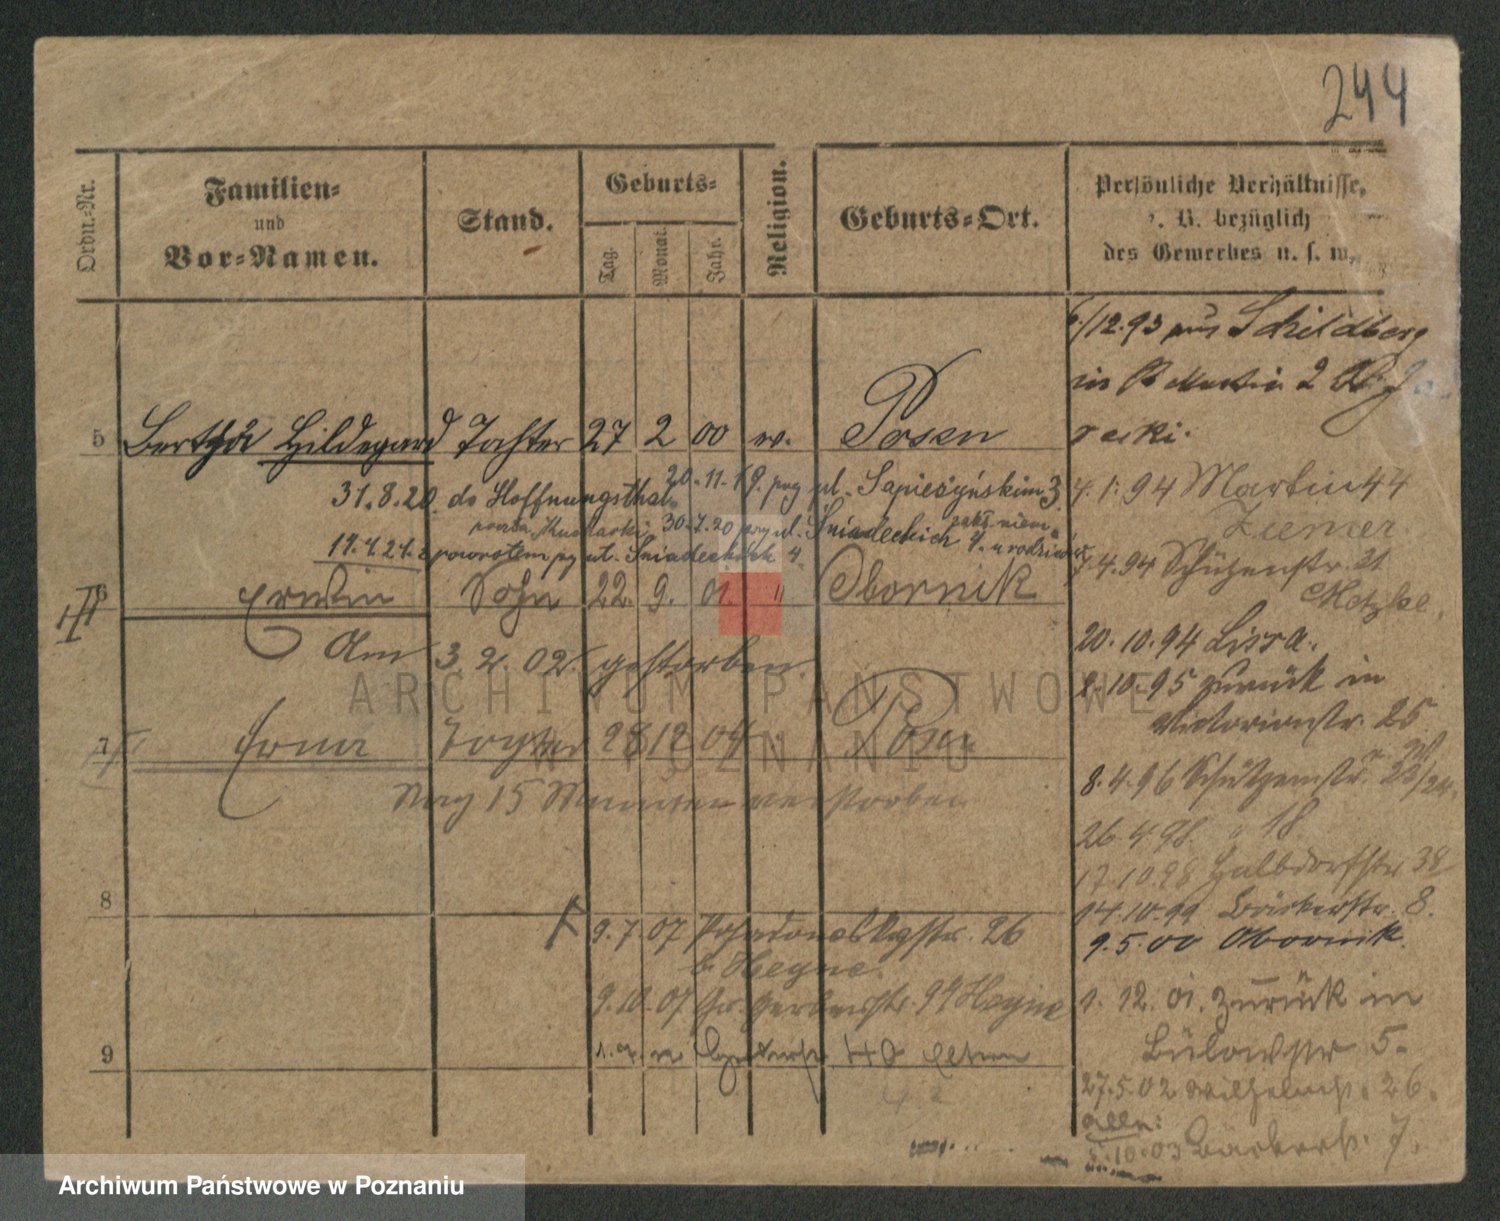 244
Ordn.-Nr.
Familien-
und
Vor-Namen.
Stand.
Geburts-
Tag.
Monat.
Jahr.
Religion.
Geburts-Ort.
Persönliche Verhältnisse,
z. B. bezüglich
des Gewerbes u. s. w.
6./12.93 aus Schildberg
in St Martin 2
5 Bertha Hildegard Tochter 27 2 00 ev. Posen
31.8.20. do Hoffnungsthal
20.11.19. przy ul. Sapieżyńskim 3.
30.7.20 przy ul. Śniadeckich 4.
z powrotem przy ul. Śniadeckich 4
4.1.94 Martin 44
Ziemer
7.4.94 Schützenstr. 21
6 Erwin Sohn 22. 9. 01. " Obornik
Am 3.2.02. gestorben
20.10.94 Lissa.
2.10.95 zurück in
Victoriastr. 25
7 Erna Tochter 28 12 04 Posen
Nach 15 Stunden verstorben
8.4.96 Schützenstr. 23/24.
26.4.98 " 18
17.10.98 Halbdorfstr 38
14.10.99 Bäckerstr. 8.
9.5.00 Obornik.
8
9.7.07 26
b. Heyne.
9.10.07 Gr. Gerberstr. Heyne
1. 12. 01. zurück in
Bülowstr 5.
9
40 Eltern
27.5.02 Wilhelmstr. 26.
alln:
5.10.03 Bäckerstr. 7.
ARCHIWUM PAŃSTWOWE
W POZNANIU
Archiwum Państwowe w Poznaniu